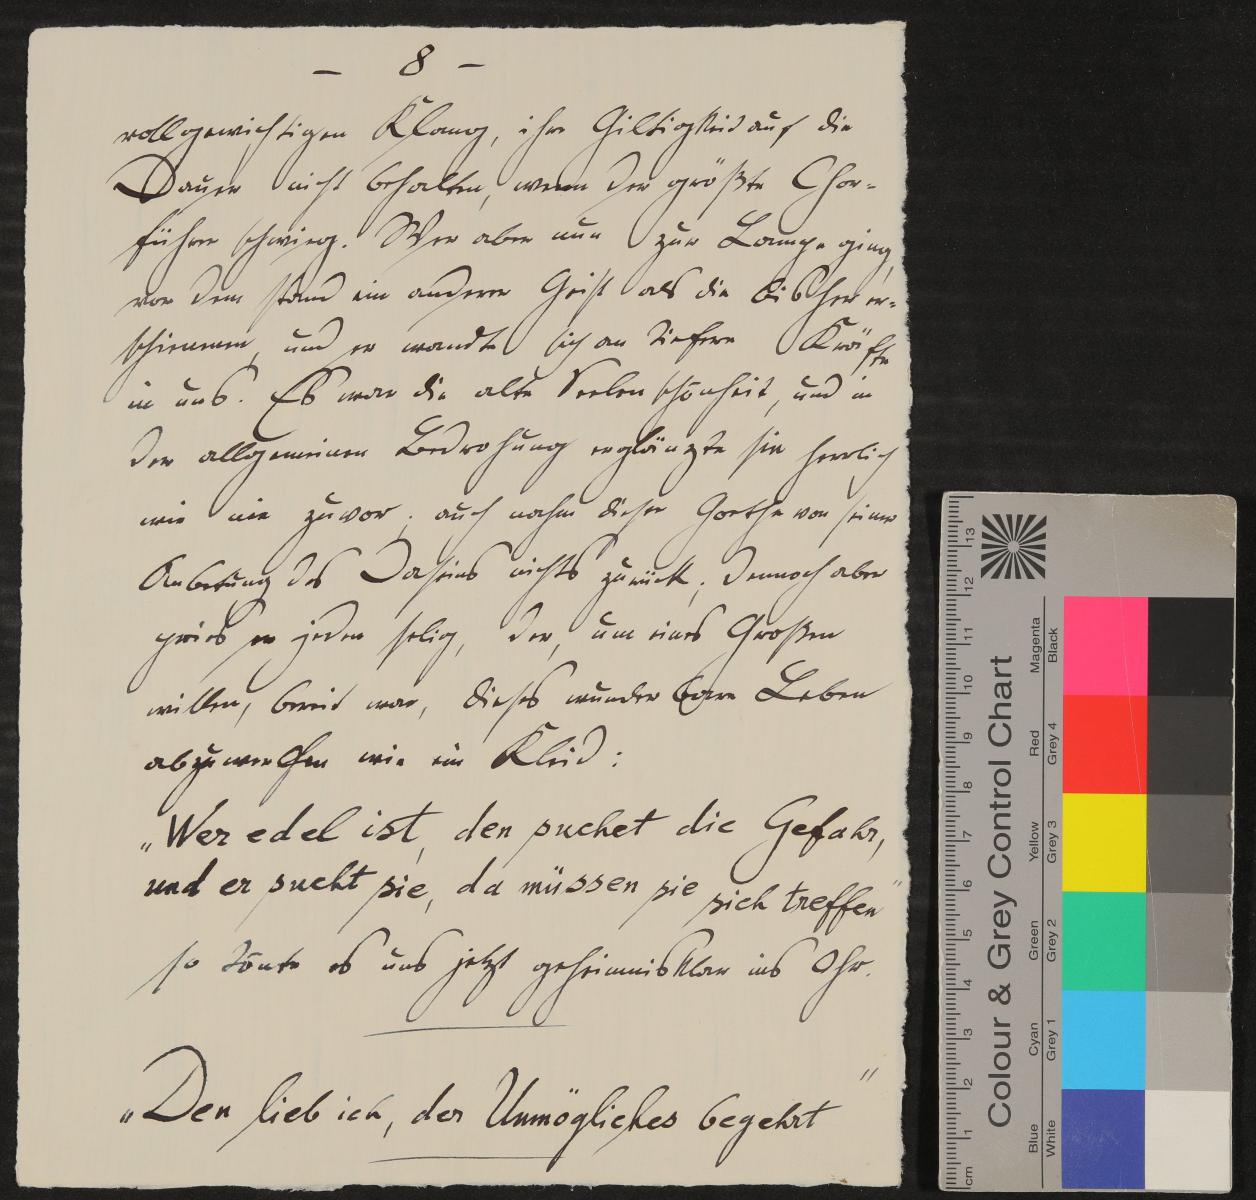 – 8 –
vollgewichtigen Klang, ihre Giltigkeit auf die
Dauer nicht behalten, wenn der größte Chor-
führer schwieg. Wer aber nun zur Lampe ging,
vor dem stand ein anderer Geist als die bisher er-
schienenen, und er wandte sich an tiefere Kräfte
in uns. Es war die alte Seelenschönheit, und in
der allgemeinen Bedrohung erglänzte sie herrlich
wie nie zuvor; auch nahm dieser Goethe von seiner
Anbetung des Daseins nichts zurück; dennoch aber
pries er jeden selig, der, um eines Großen
willen, bereit war, dieses wunderbare Leben
abzuwerfen wie ein Kleid:
„Wer edel ist, den suchet die Gefahr,
und er sucht sie, da müssen sie sich treffen"
so tönte es uns jetzt geheimnisklar ins Ohr.
„Den lieb ich, der Unmögliches begehrt"
Colour & Grey Control Chart
Blue Cyan Green Yellow Red Magenta
White Grey 1 Grey 2 Grey 3 Grey 4 Black
cm 1 2 3 4 5 6 7 8 9 10 11 12 13